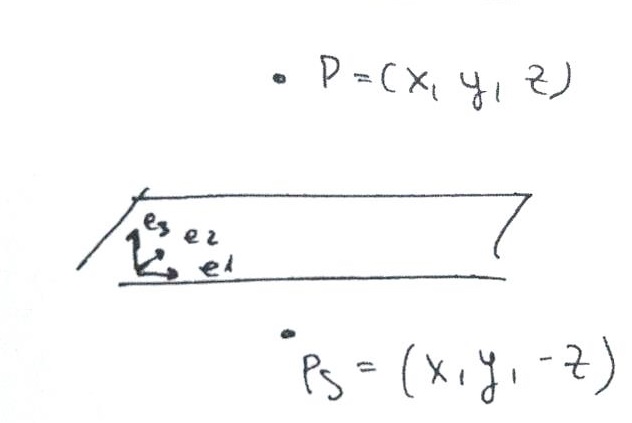 P=(x, y, z)
e3
e2
e1
Ps = (x, y, -z)